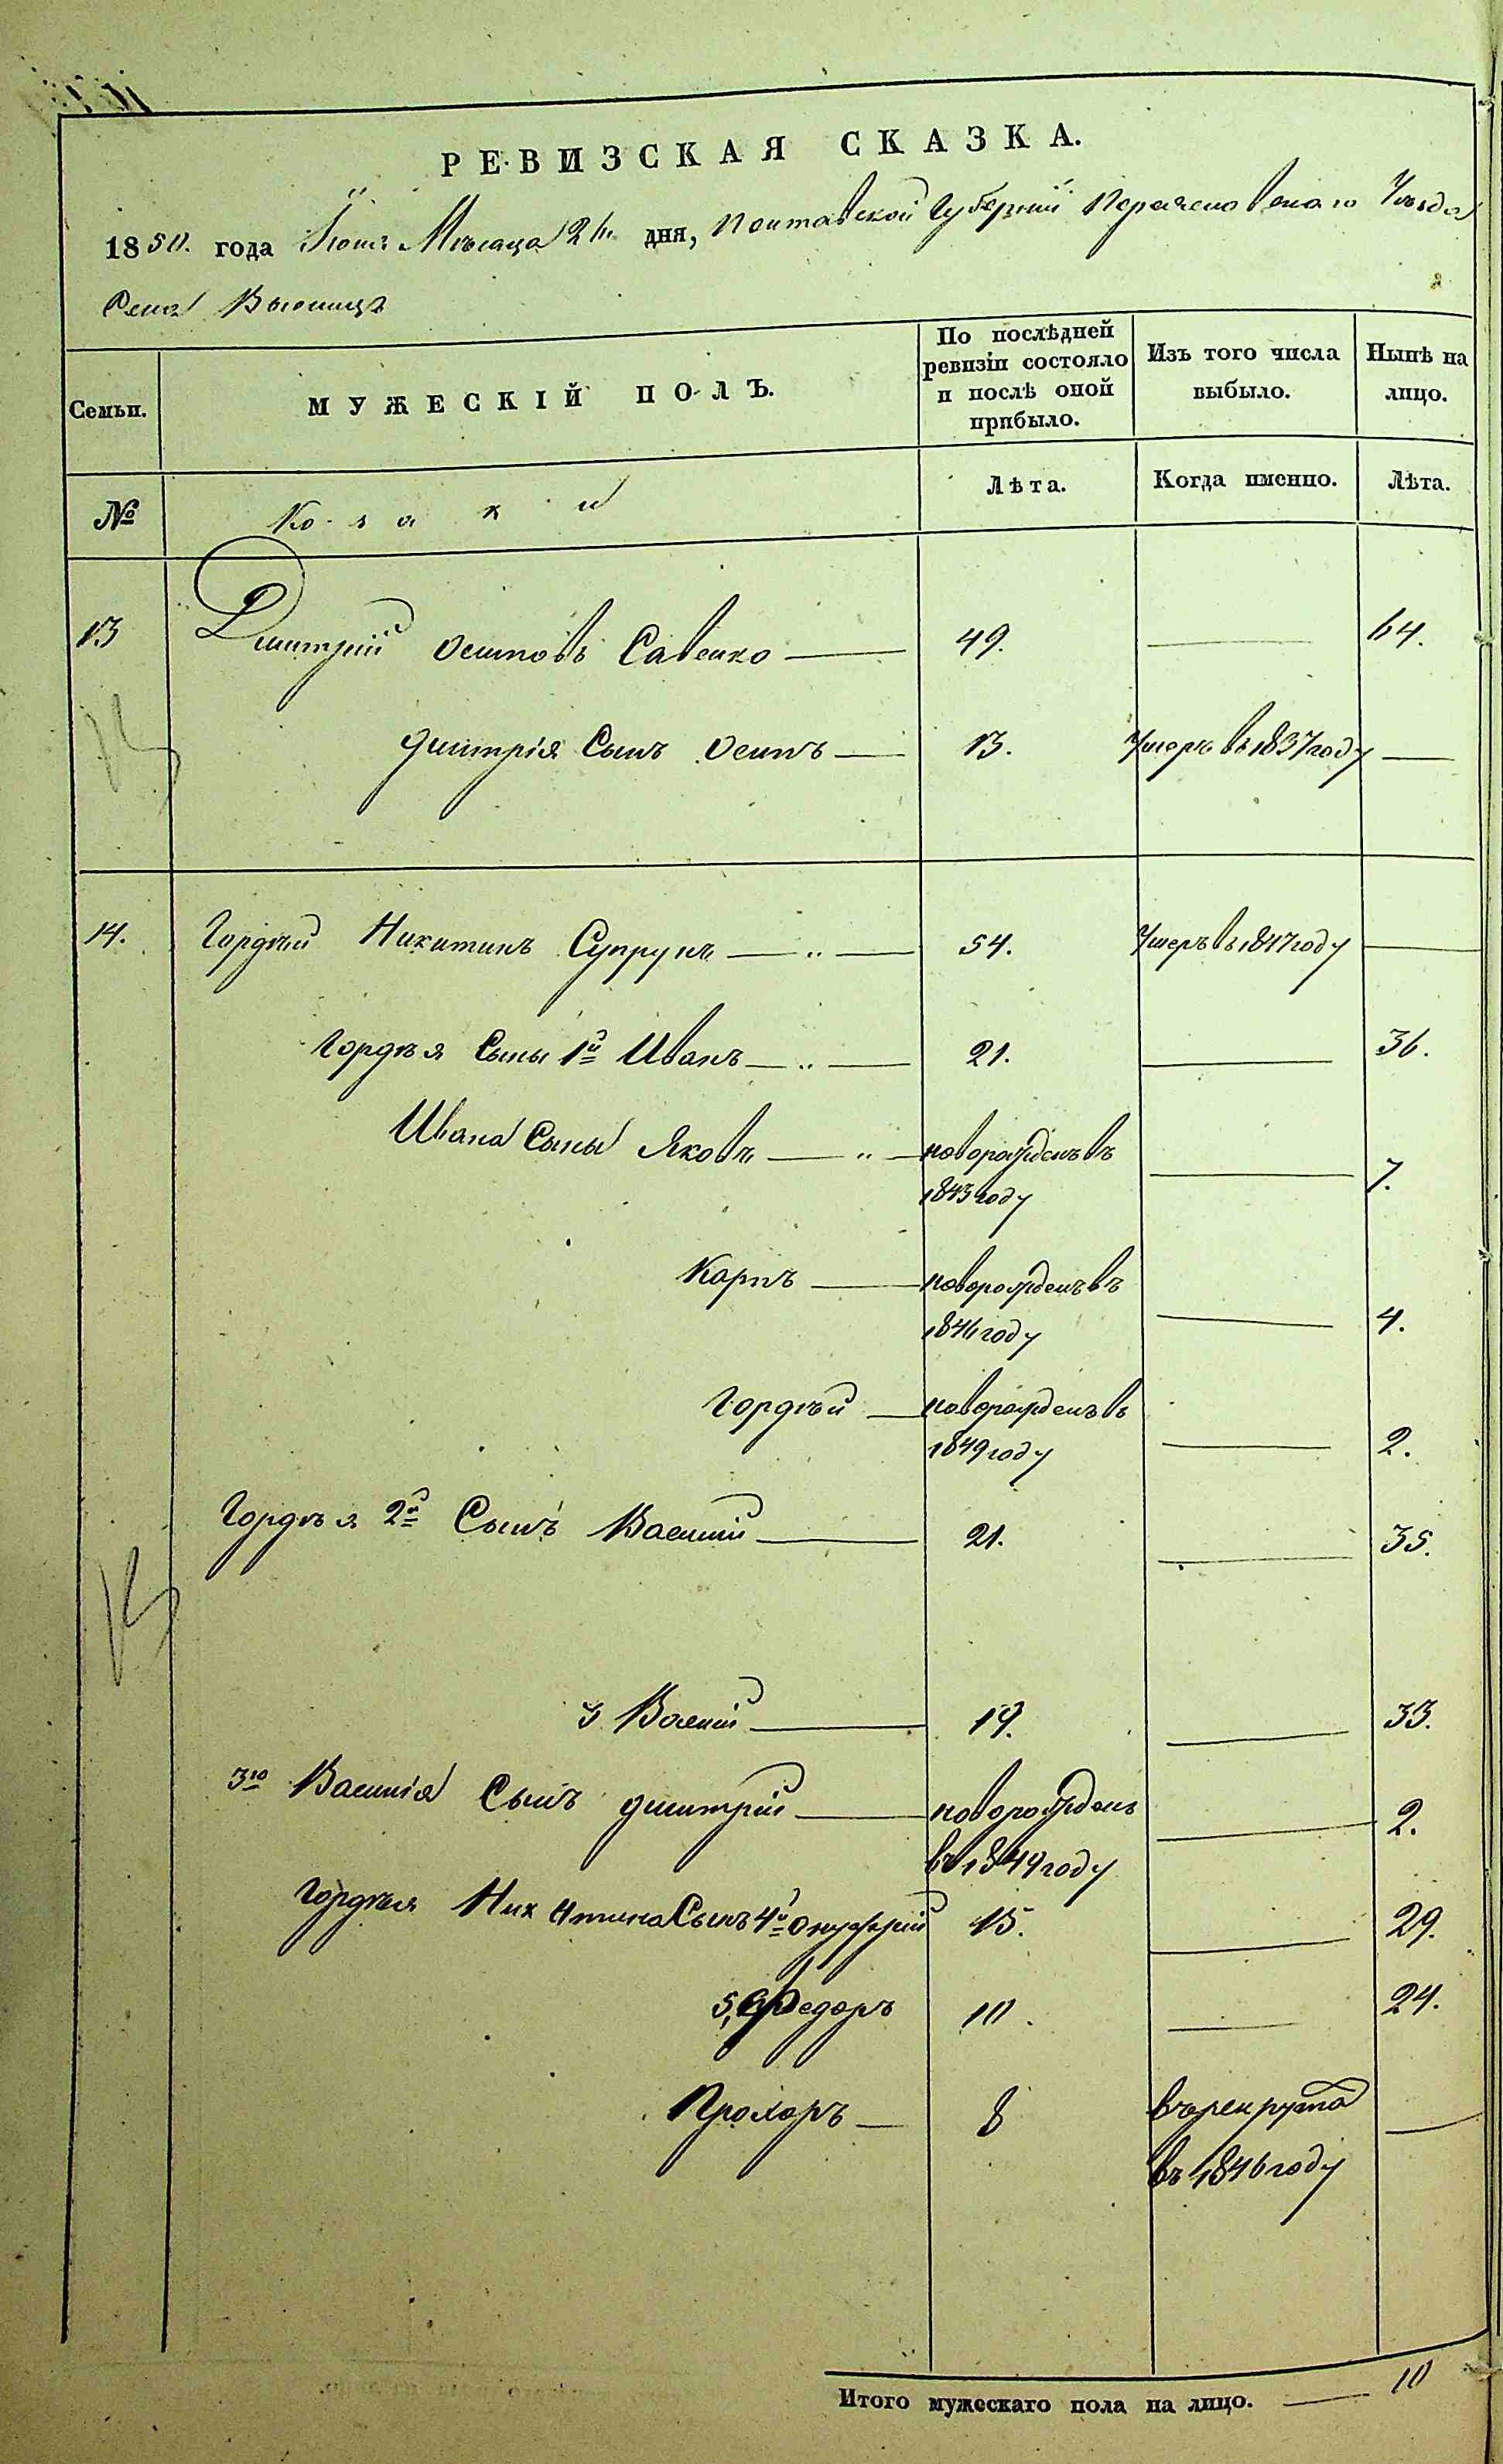 РЕВИЗСКАЯ СКАЗКА.
1850. года Іюня Мѣсяца 26 дня, Полтавской Губерніи Переяславскаго Уѣзда
Села Вьюницъ
Семьи.
МУЖЕСКІЙ ПОЛЪ.
По послѣдней ревизіи состояло и послѣ оной прибыло.
Изъ того числа выбыло.
Нынѣ на лицо.
№ Козаки Лѣта. Когда именно. Лѣта.
13 Дмитрій Осиповъ Савенко 49. 64.
Дмитрія Сынъ Осипъ 13. Умеръ въ 1837 году
14. Гордѣй Никитинъ Супрунъ 54. Умеръ въ 1847 году
Гордѣя Сыны 1й Иванъ 21. 36.
Ивана Сыны Яковъ новорожденъ въ 7.
1843 году
Карпъ новорожденъ въ
1846 году 4.
Гордѣй новорожденъ въ
1849 году 2.
Гордѣя 2й Сынъ Василій 21. 35.
3 Василій 19. 33.
3го Василія Сынъ Дмитрій новорожденъ 2.
въ 1849 году
Гордѣя Никитина Сынъ 4й Онуфрій 15. 29.
5, Федоръ 10. 24.
Прохоръ 8 въ рекруты
въ 1846 году
Итого мужескаго пола на лицо. 10